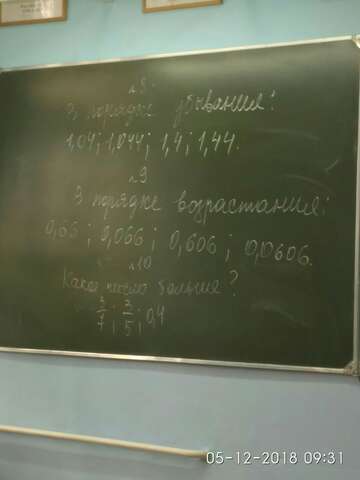 №8.
В порядке убывания:
1,04; 1,044; 1,4; 1,44.
№9
В порядке возрастания:
0,66; 0,066; 0,606; 0,0606.
№10
Какое число больше?
3/7; 3/5; 0,4
05-12-2018 09:31